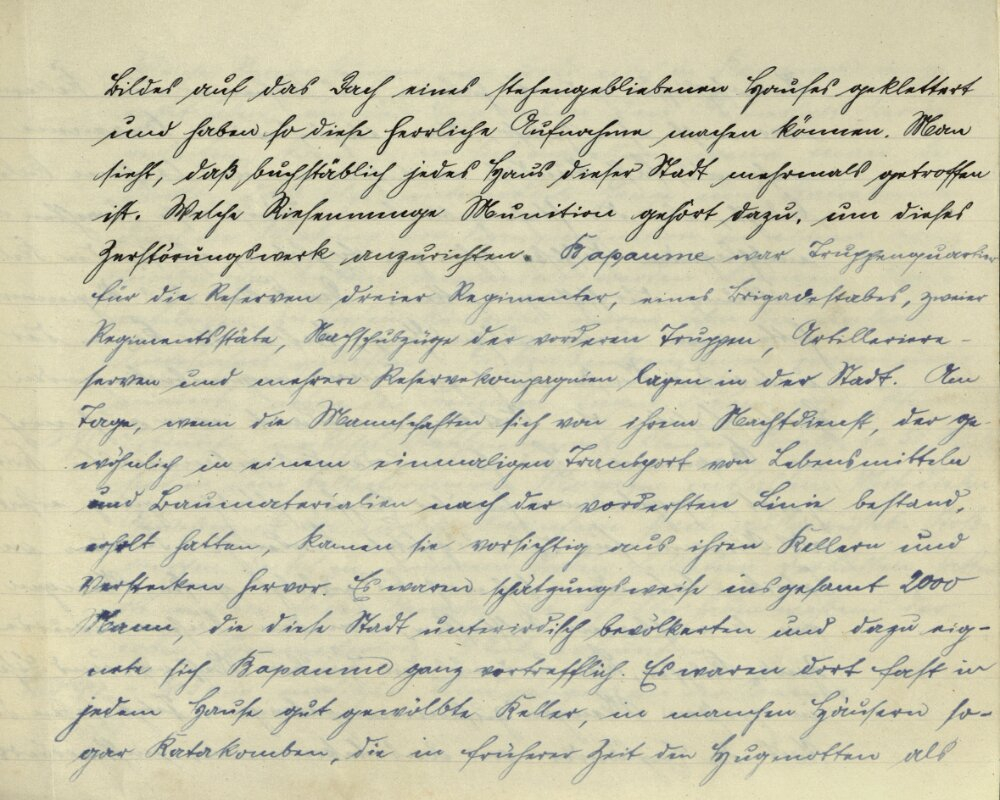 Bildes auf das Dach eines stehengebliebenen Hauses geklettert
und haben so diese herrliche Aufnahme machen können. Man
sieht, daß buchstäblich jedes Haus dieser Stadt mehrmals getroffen
ist. Welche Riesenmenge Munition gehört dazu, um dieses
Zerstörungswerk anzurichten. Bapaume war Truppenquartier
für die Reserven dreier Regimenter, eines Brigadestabes, zweier
Regimentsstäbe, Nachschubzüge der vorderen Truppen, Artilleriere-
serven und mehrere Reservekompagnien lagen in der Stadt. Am
Tage, wenn die Mannschaften sich von ihrem Nachtdienst, der ge-
wöhnlich in einem einmaligen Transport von Lebensmitteln
und Baumaterialien nach der vordersten Linie bestand,
erholt hatten, kamen sie vorsichtig aus ihren Kellern und
Verstecken hervor. Es waren schätzungsweise insgesamt 2000
Mann, die diese Stadt unterirdisch bevölkerten und dazu eig-
nete sich Bapaume ganz vortrefflich. Es waren dort fast in
jedem Hause gut gewölbte Keller, in manchen Häusern so-
gar Katakomben, die in früherer Zeit den Hugenotten als